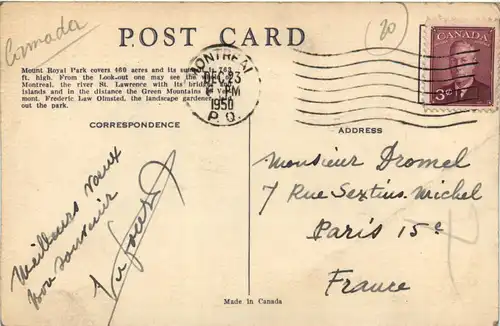 Canada
20
POST CARD
CANADA
3¢
MONTREAL
DEC 23
PM
1950
P. Q.
Mount Royal Park covers 460 acres and its summit is 763
ft. high. From the Look-out one may see the
Montreal, the river St. Lawrence with its bridges
islands and in the distance the Green Mountains of Ver-
mont. Frederic Law Olmsted, the landscape gardener
out the park.
CORRESPONDENCE
ADDRESS
Meilleurs voeux
bon souvenir
Monsieur Dromel
7 Rue Sextius. Michel
Paris 15e
France
Made in Canada